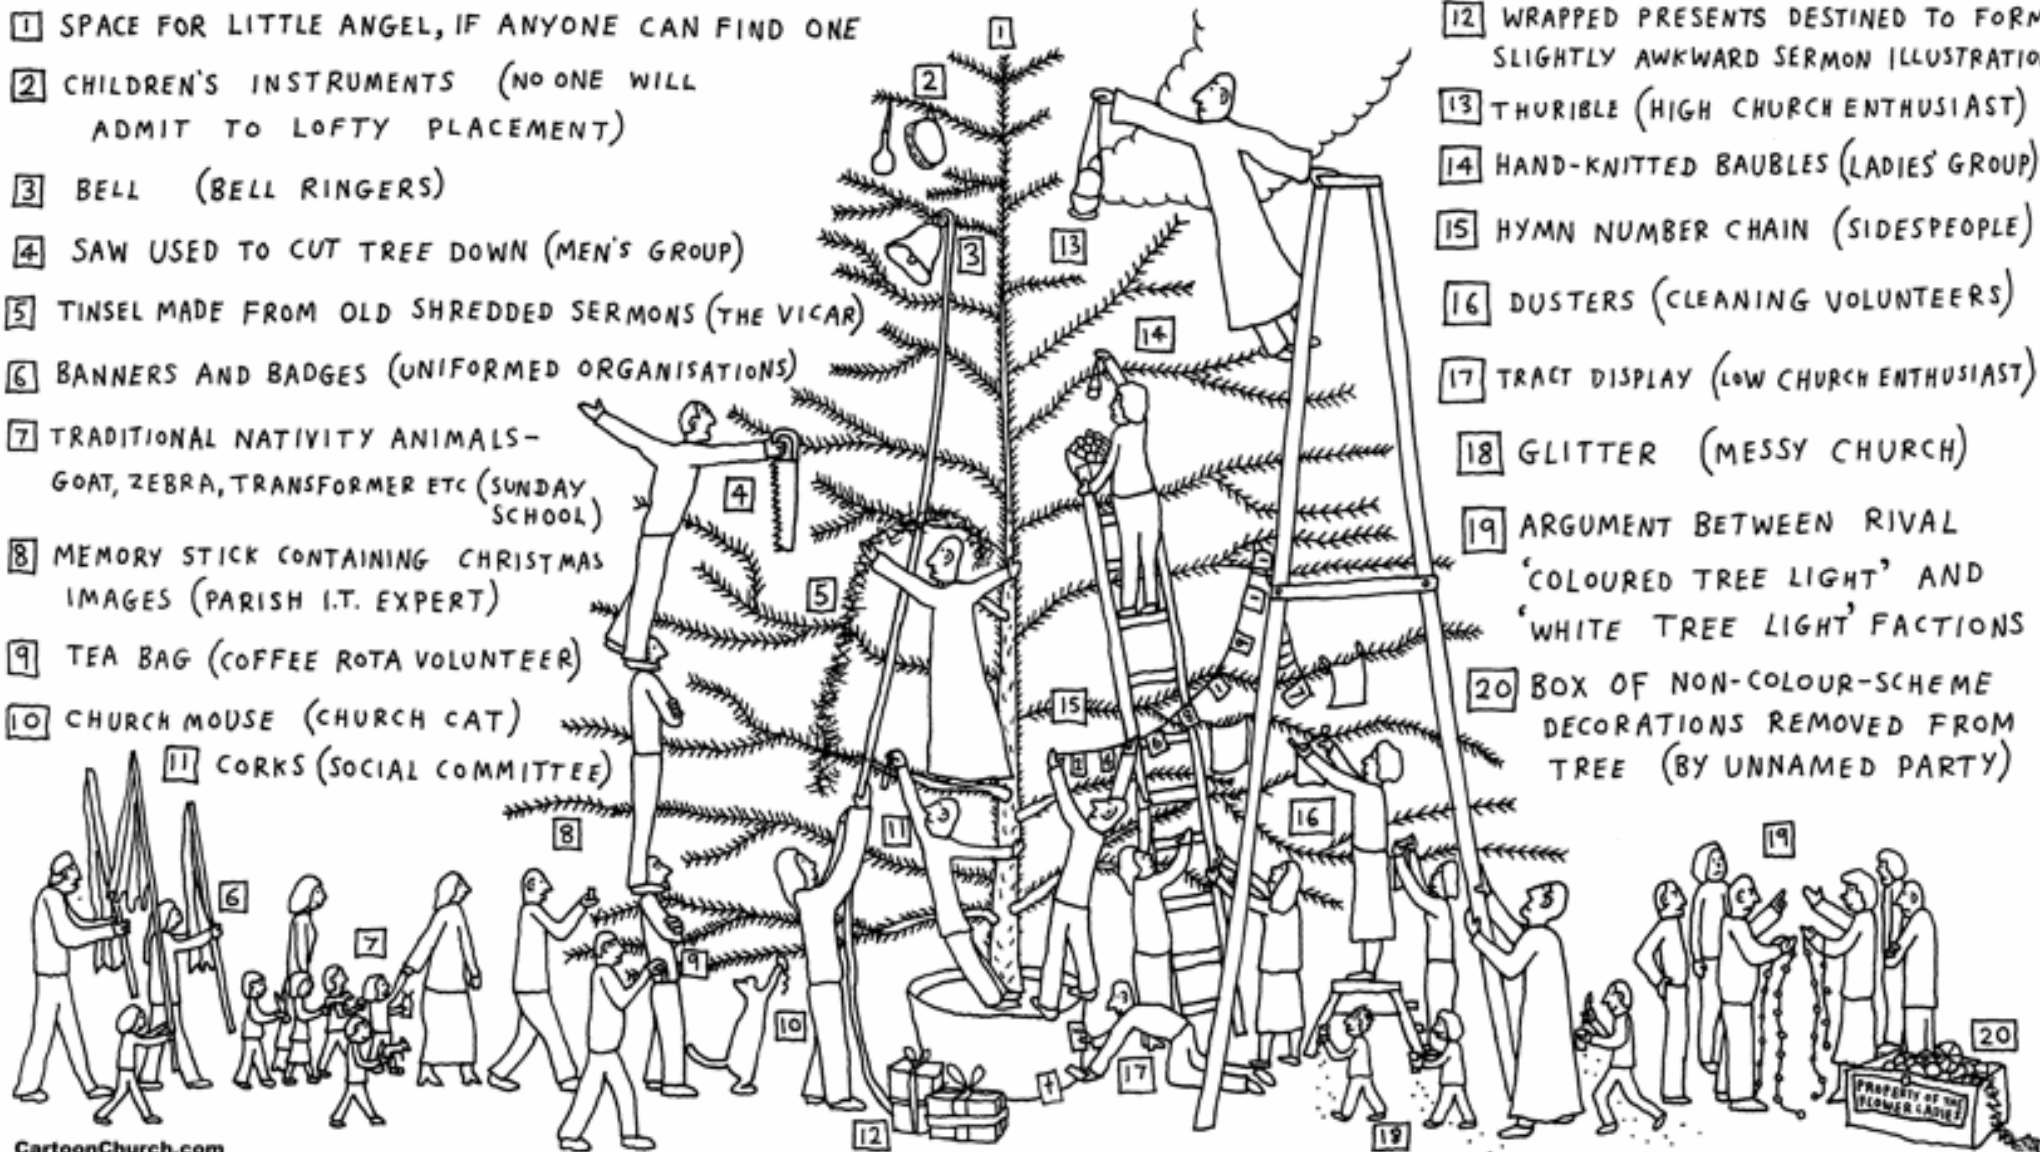 1 SPACE FOR LITTLE ANGEL, IF ANYONE CAN FIND ONE
2 CHILDREN'S INSTRUMENTS (NO ONE WILL
ADMIT TO LOFTY PLACEMENT)
3 BELL (BELL RINGERS)
4 SAW USED TO CUT TREE DOWN (MEN'S GROUP)
5 TINSEL MADE FROM OLD SHREDDED SERMONS (THE VICAR)
6 BANNERS AND BADGES (UNIFORMED ORGANISATIONS)
7 TRADITIONAL NATIVITY ANIMALS-
GOAT, ZEBRA, TRANSFORMER ETC (SUNDAY
SCHOOL)
8 MEMORY STICK CONTAINING CHRISTMAS
IMAGES (PARISH I.T. EXPERT)
9 TEA BAG (COFFEE ROTA VOLUNTEER)
10 CHURCH MOUSE (CHURCH CAT)
11 CORKS (SOCIAL COMMITTEE)
12 WRAPPED PRESENTS DESTINED TO FORM
SLIGHTLY AWKWARD SERMON ILLUSTRATIO
13 THURIBLE (HIGH CHURCH ENTHUSIAST)
14 HAND-KNITTED BAUBLES (LADIES' GROUP)
15 HYMN NUMBER CHAIN (SIDESPEOPLE)
16 DUSTERS (CLEANING VOLUNTEERS)
17 TRACT DISPLAY (LOW CHURCH ENTHUSIAST)
18 GLITTER (MESSY CHURCH)
19 ARGUMENT BETWEEN RIVAL
'COLOURED TREE LIGHT' AND
'WHITE TREE LIGHT' FACTIONS
20 BOX OF NON-COLOUR-SCHEME
DECORATIONS REMOVED FROM
TREE (BY UNNAMED PARTY)
1
2
3
13
14
4
5
15
8
11
16
19
6
7
9
10
17
20
PROPERTY OF THE
FLOWER LADIES
12
18
CartoonChurch.com